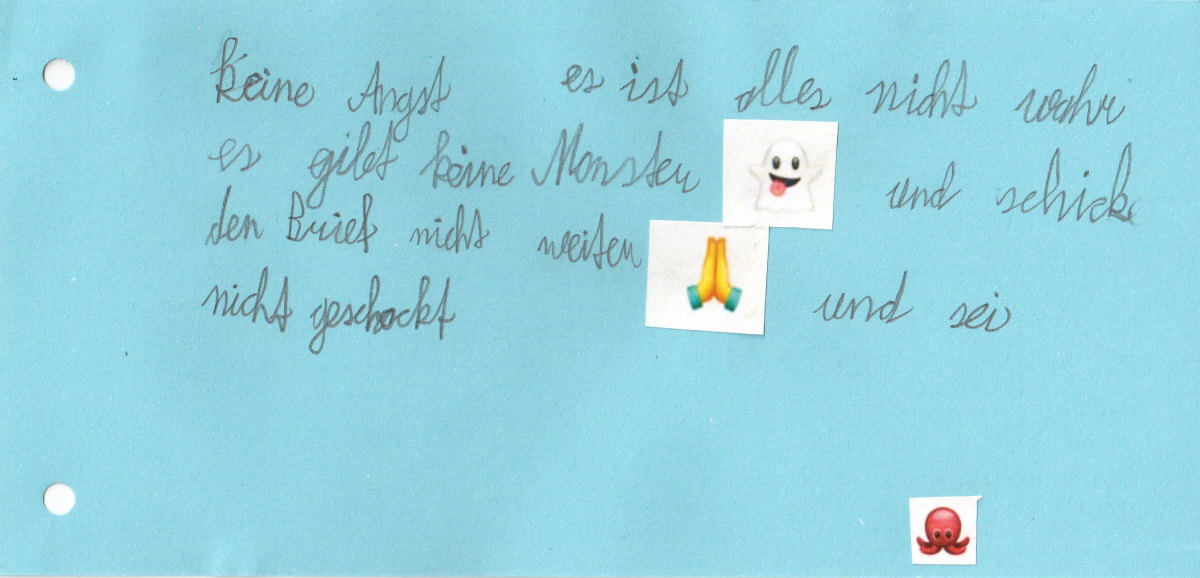 keine Angst es ist alles nicht wahr
es gibt keine Monster 👻 und schicke
den Brief nicht weiter 🙏 und sei
nicht geschockt
🐙